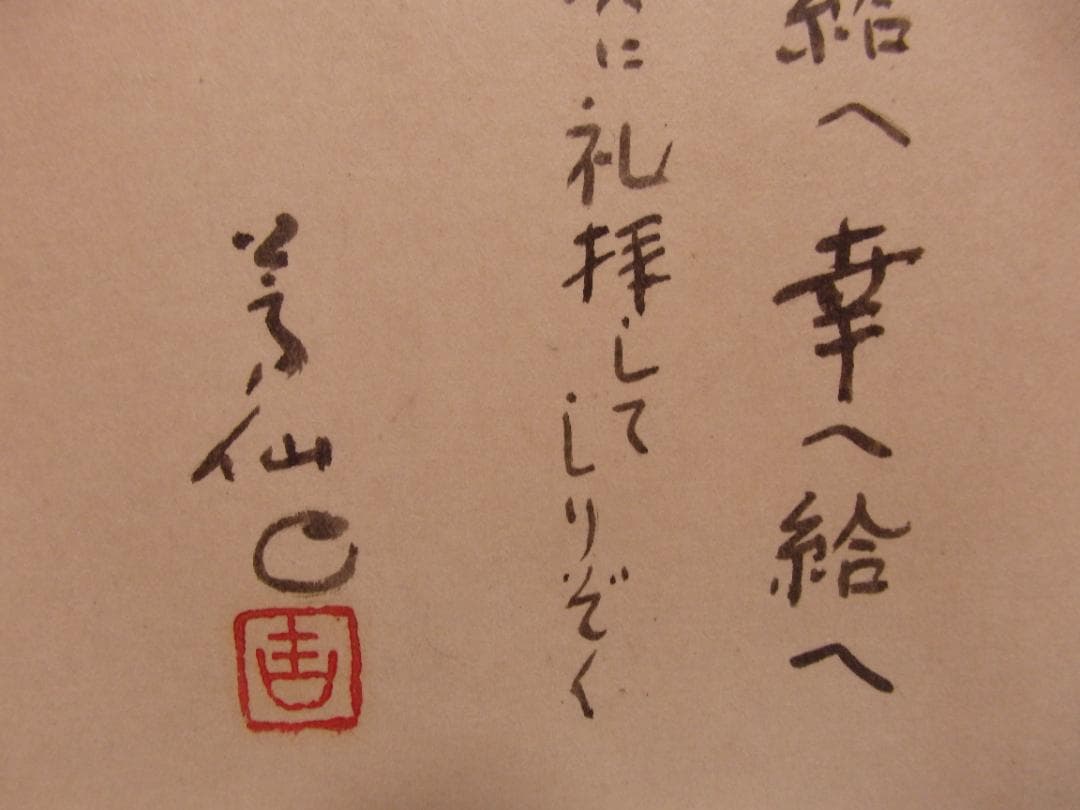 給へ 幸へ給へ
に礼拝して
しりぞく
仙